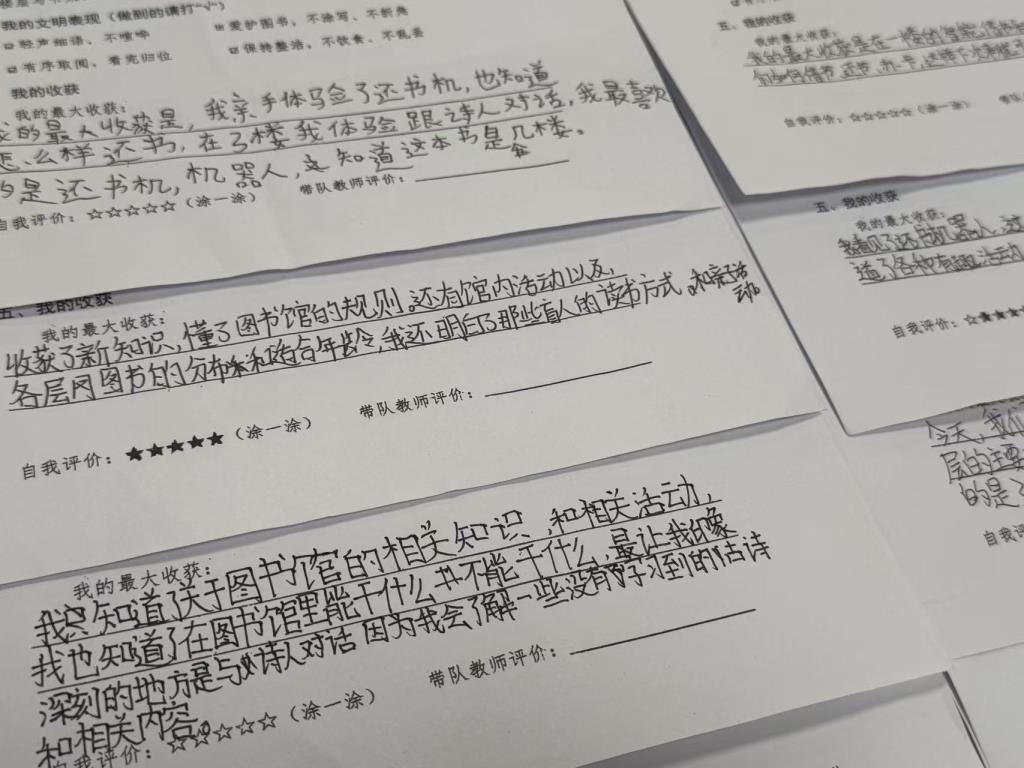 我的文明表现（做到的请打"√"）
轻声细语、不喧哗
爱护图书，不涂写、不折角
有序取阅、看完归位
保持整洁，不饮食、不乱丢
我的收获
我的最大收获：
的最大收获是，我亲手体验了还书机，也知道
怎么样还书，在了楼我体验跟诗人对话，我最喜欢
的是还书机，机器人，知道这本书是几楼。
自我评价：☆☆☆☆☆（涂一涂）
带队教师评价：
五、我的收获
我的最大收获：
收获了新知识，懂了图书馆的规则。还有馆内活动以及
各层网图书的分布和适合年龄，我还明白了那些盲人的读书方式。和亲子活
动。
自我评价：★★★★★（涂一涂）
带队教师评价：
我的最大收获：
我只知道了关于图书馆的相关知识，和相关活动，
我也知道了在图书馆里能干什么、不能干什么，最让我印象
深刻的地方是与诗人对话因为我会了解一些没有学习到的古诗
和相关内容。
自我评价：☆☆☆☆☆（涂一涂）
带队教师评价：
五、我的收获
我的最大收获
自我评价：☆☆☆☆☆（涂一涂）
五、我的收获
我的最大收获：
我看见了还书机器人，这
道了各种有趣活动
自我评价：☆★★★
今天，我们
层的主要
的是
自我评